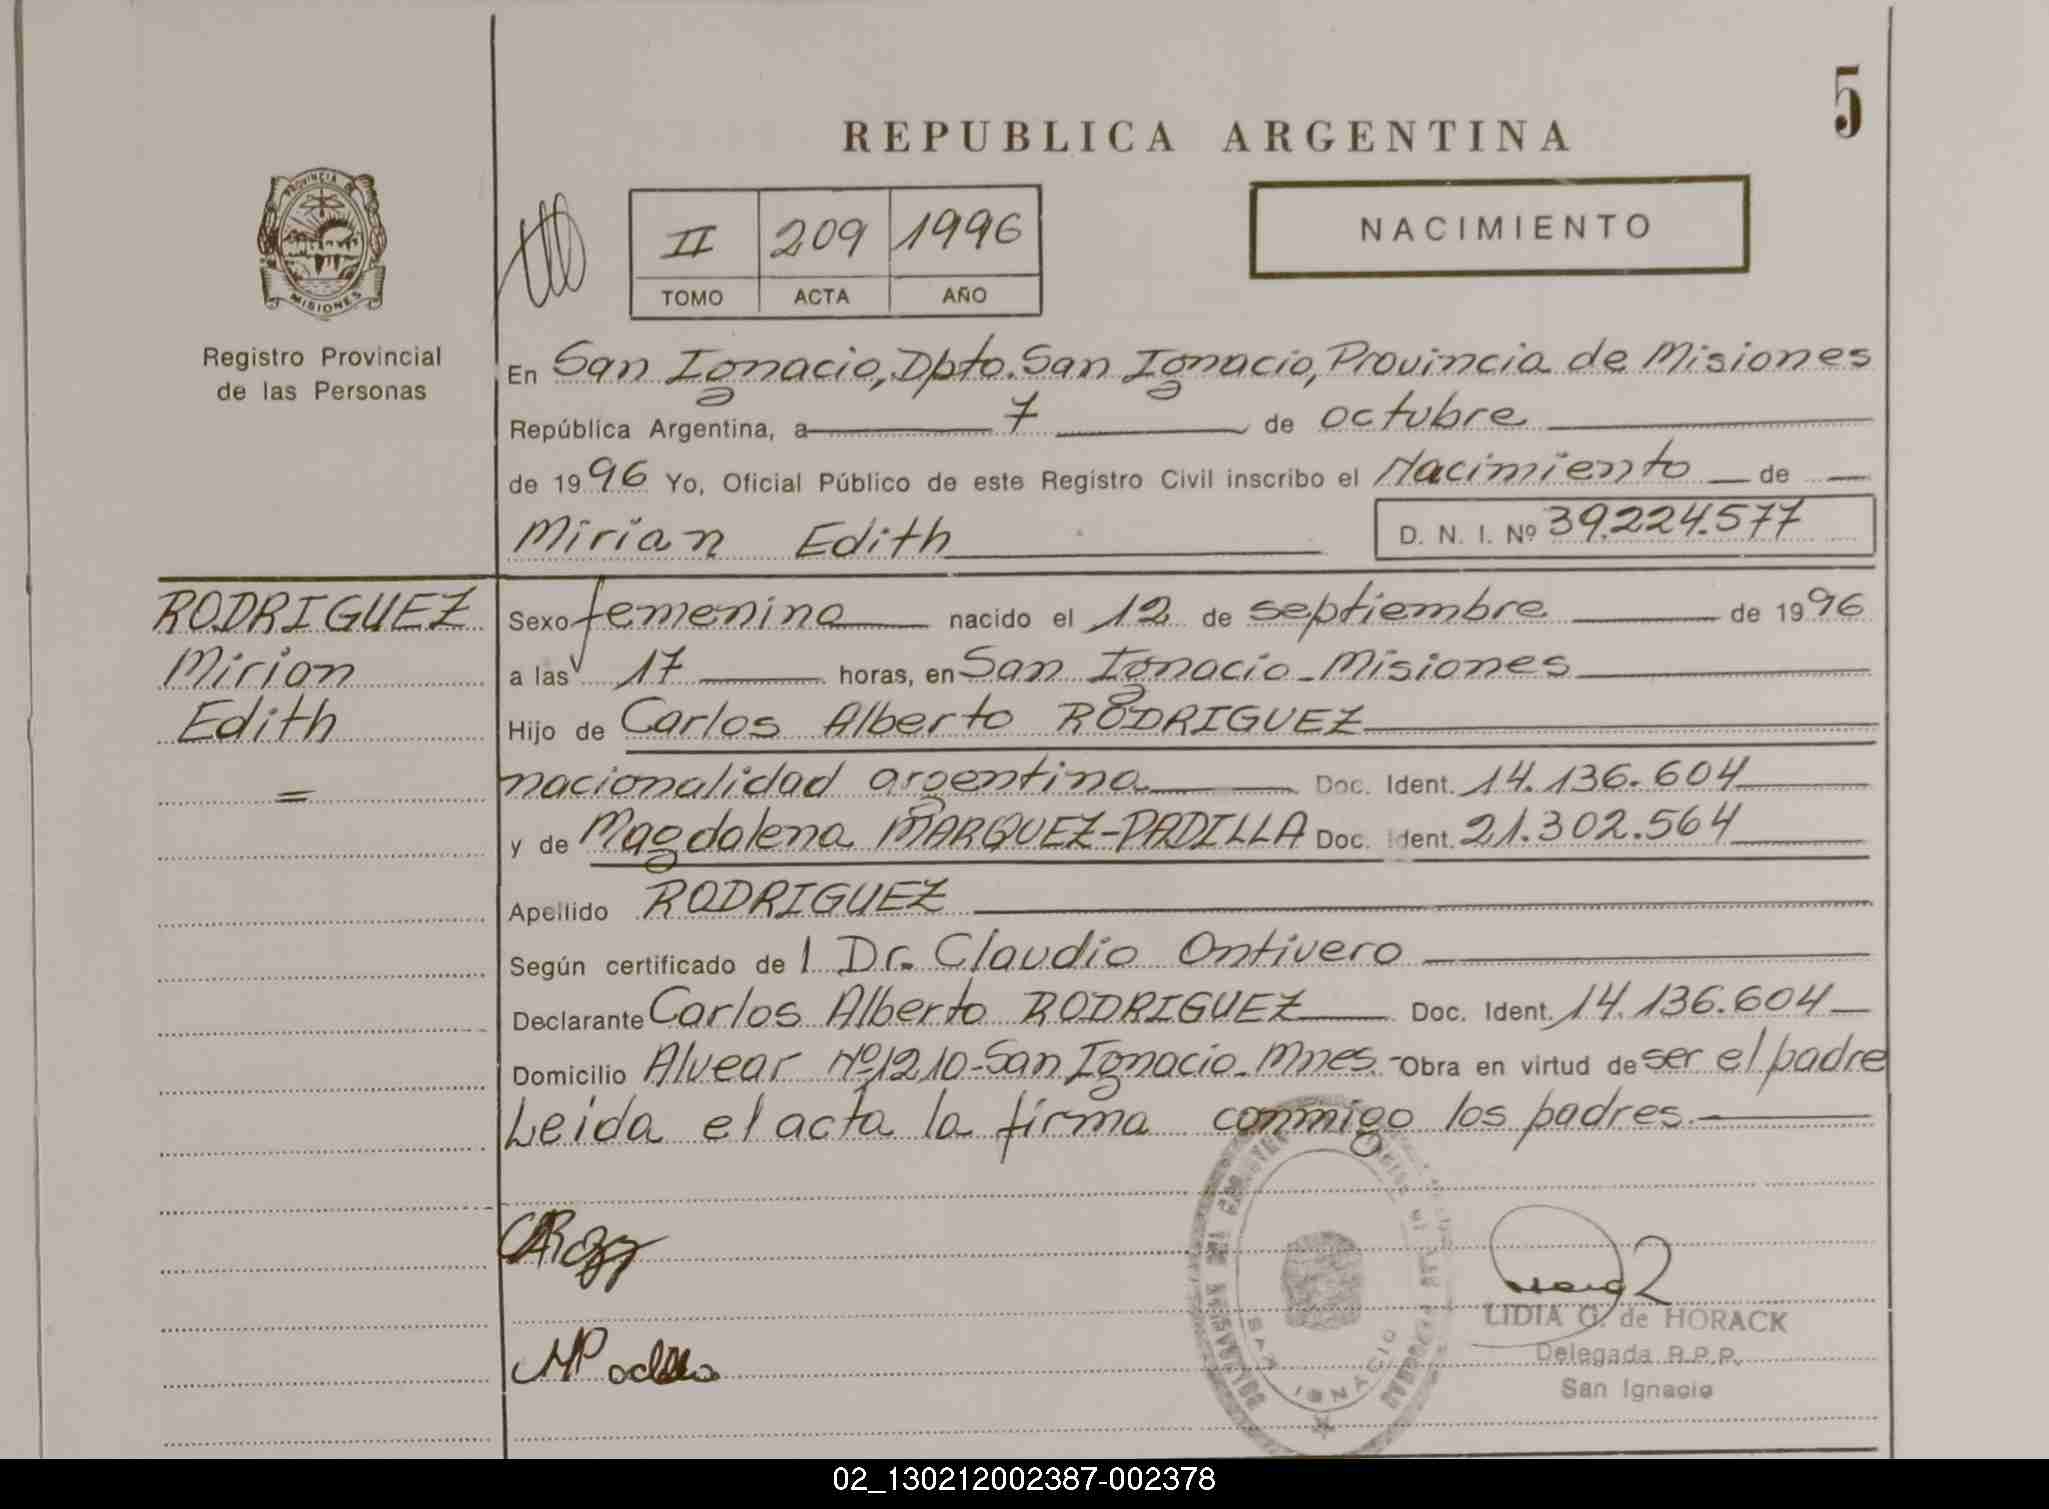 5
REPUBLICA ARGENTINA
NACIMIENTO
II 209 1996
TOMO ACTA AÑO
PROVINCIA DE
MISIONES
Registro Provincial
de las Personas
En San Ignacio, Dpto. San Ignacio, Provincia de Misiones
República Argentina, a 7 de octubre
de 1996 Yo, Oficial Público de este Registro Civil inscribo el Nacimiento de
Mirian Edith D. N. I. Nº 39.224.577
RODRIGUEZ
Mirian
Edith
=
Sexo femenino nacido el 12 de septiembre de 1996
a las 17 horas, en San Ignacio - Misiones
Hijo de Carlos Alberto RODRIGUEZ
nacionalidad argentina Doc. Ident. 14.136.604
y de Magdalena MARQUEZ-PADILLA Doc. Ident. 21.302.564
Apellido RODRIGUEZ
Según certificado de l Dr. Claudio Ontivero
Declarante Carlos Alberto RODRIGUEZ Doc. Ident. 14.136.604
Domicilio Alvear Nº 1210-San Ignacio-Mnes.- Obra en virtud de ser el padre
Leida el acta la firma conmigo los padres.
LIDIA G. de HORACK
Delegada R.P.P.
San Ignacio
SAN IGNACIO
02_130212002387-002378